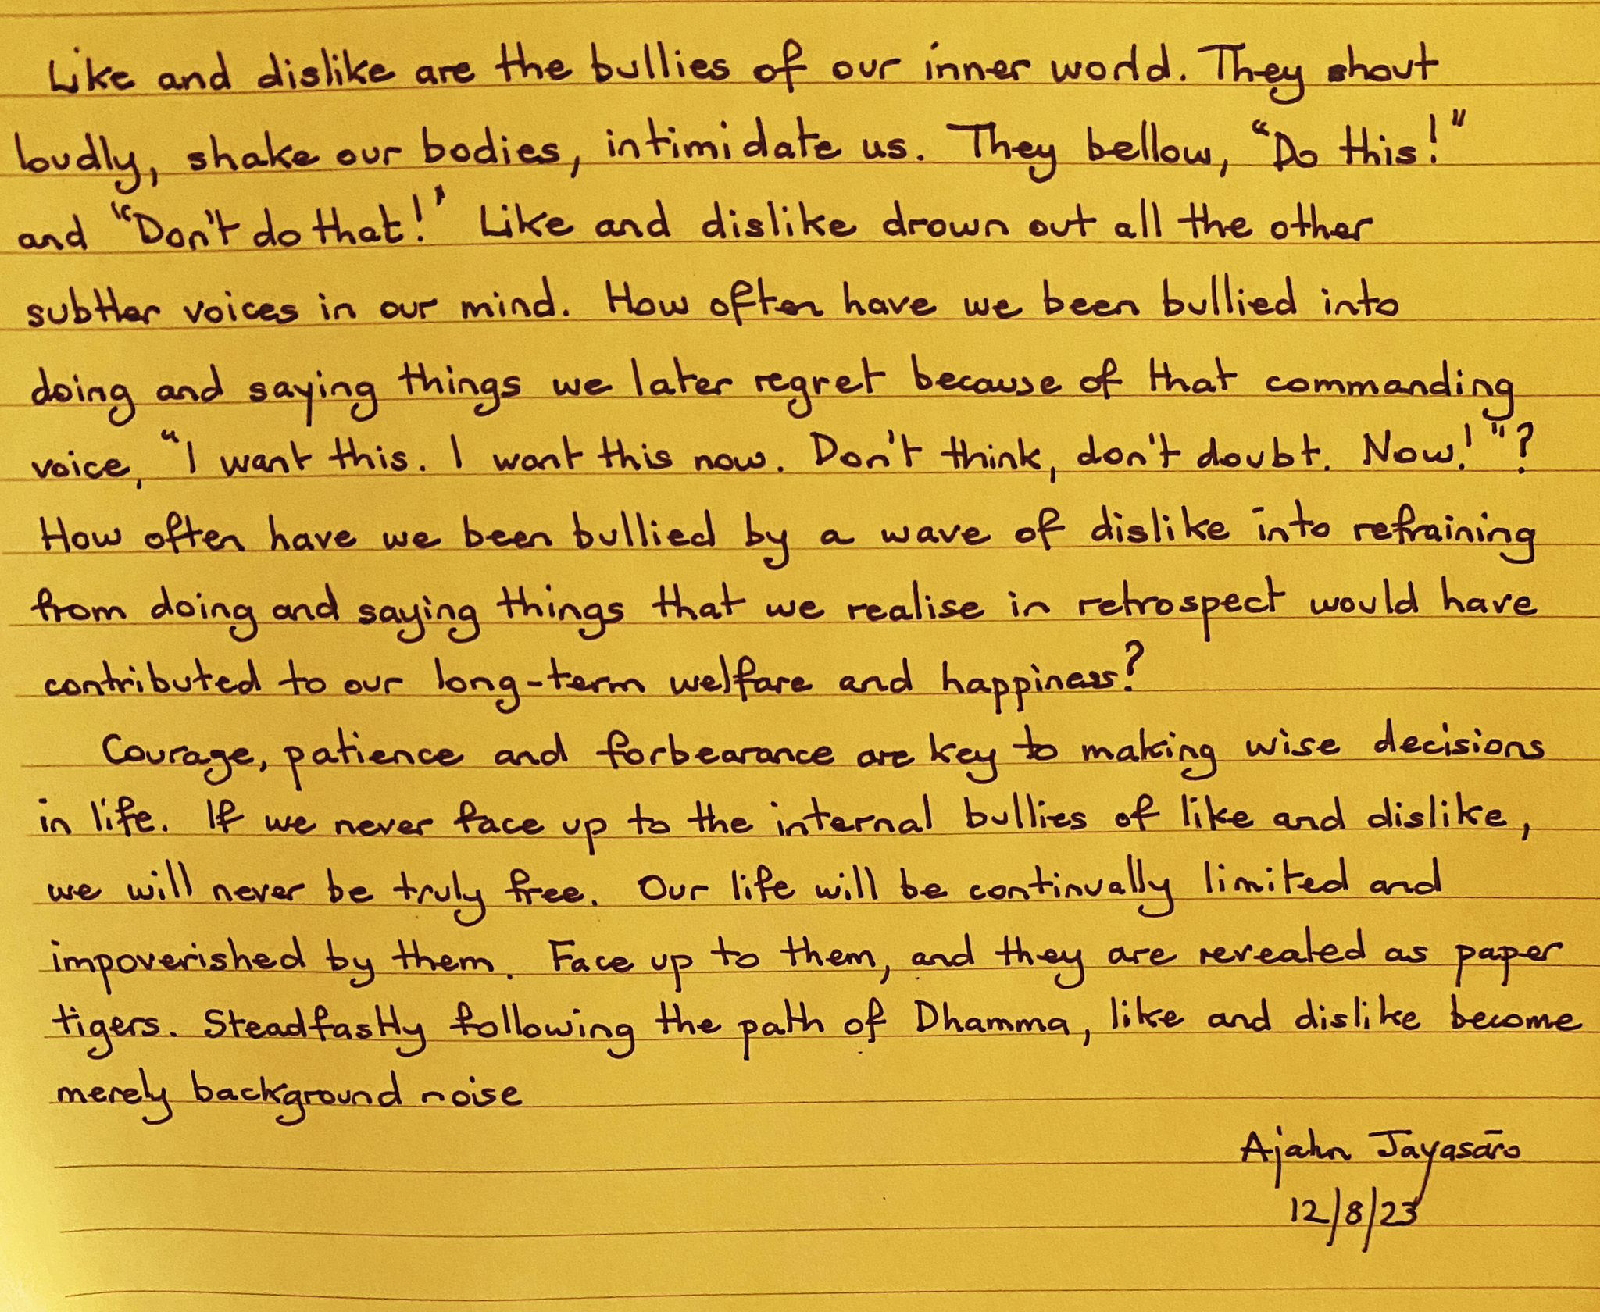 Like and dislike are the bullies of our inner world. They shout
loudly, shake our bodies, intimidate us. They bellow, "Do this!"
and "Don't do that!" Like and dislike drown out all the other
subtler voices in our mind. How often have we been bullied into
doing and saying things we later regret because of that commanding
voice, "I want this. I want this now. Don't think, don't doubt. Now!"?
How often have we been bullied by a wave of dislike into refraining
from doing and saying things that we realise in retrospect would have
contributed to our long-term welfare and happiness?
Courage, patience and forbearance are key to making wise decisions
in life. If we never face up to the internal bullies of like and dislike,
we will never be truly free. Our life will be continually limited and
impoverished by them. Face up to them, and they are revealed as paper
tigers. Steadfastly following the path of Dhamma, like and dislike become
merely background noise
Ajahn Jayasāro
12/8/23